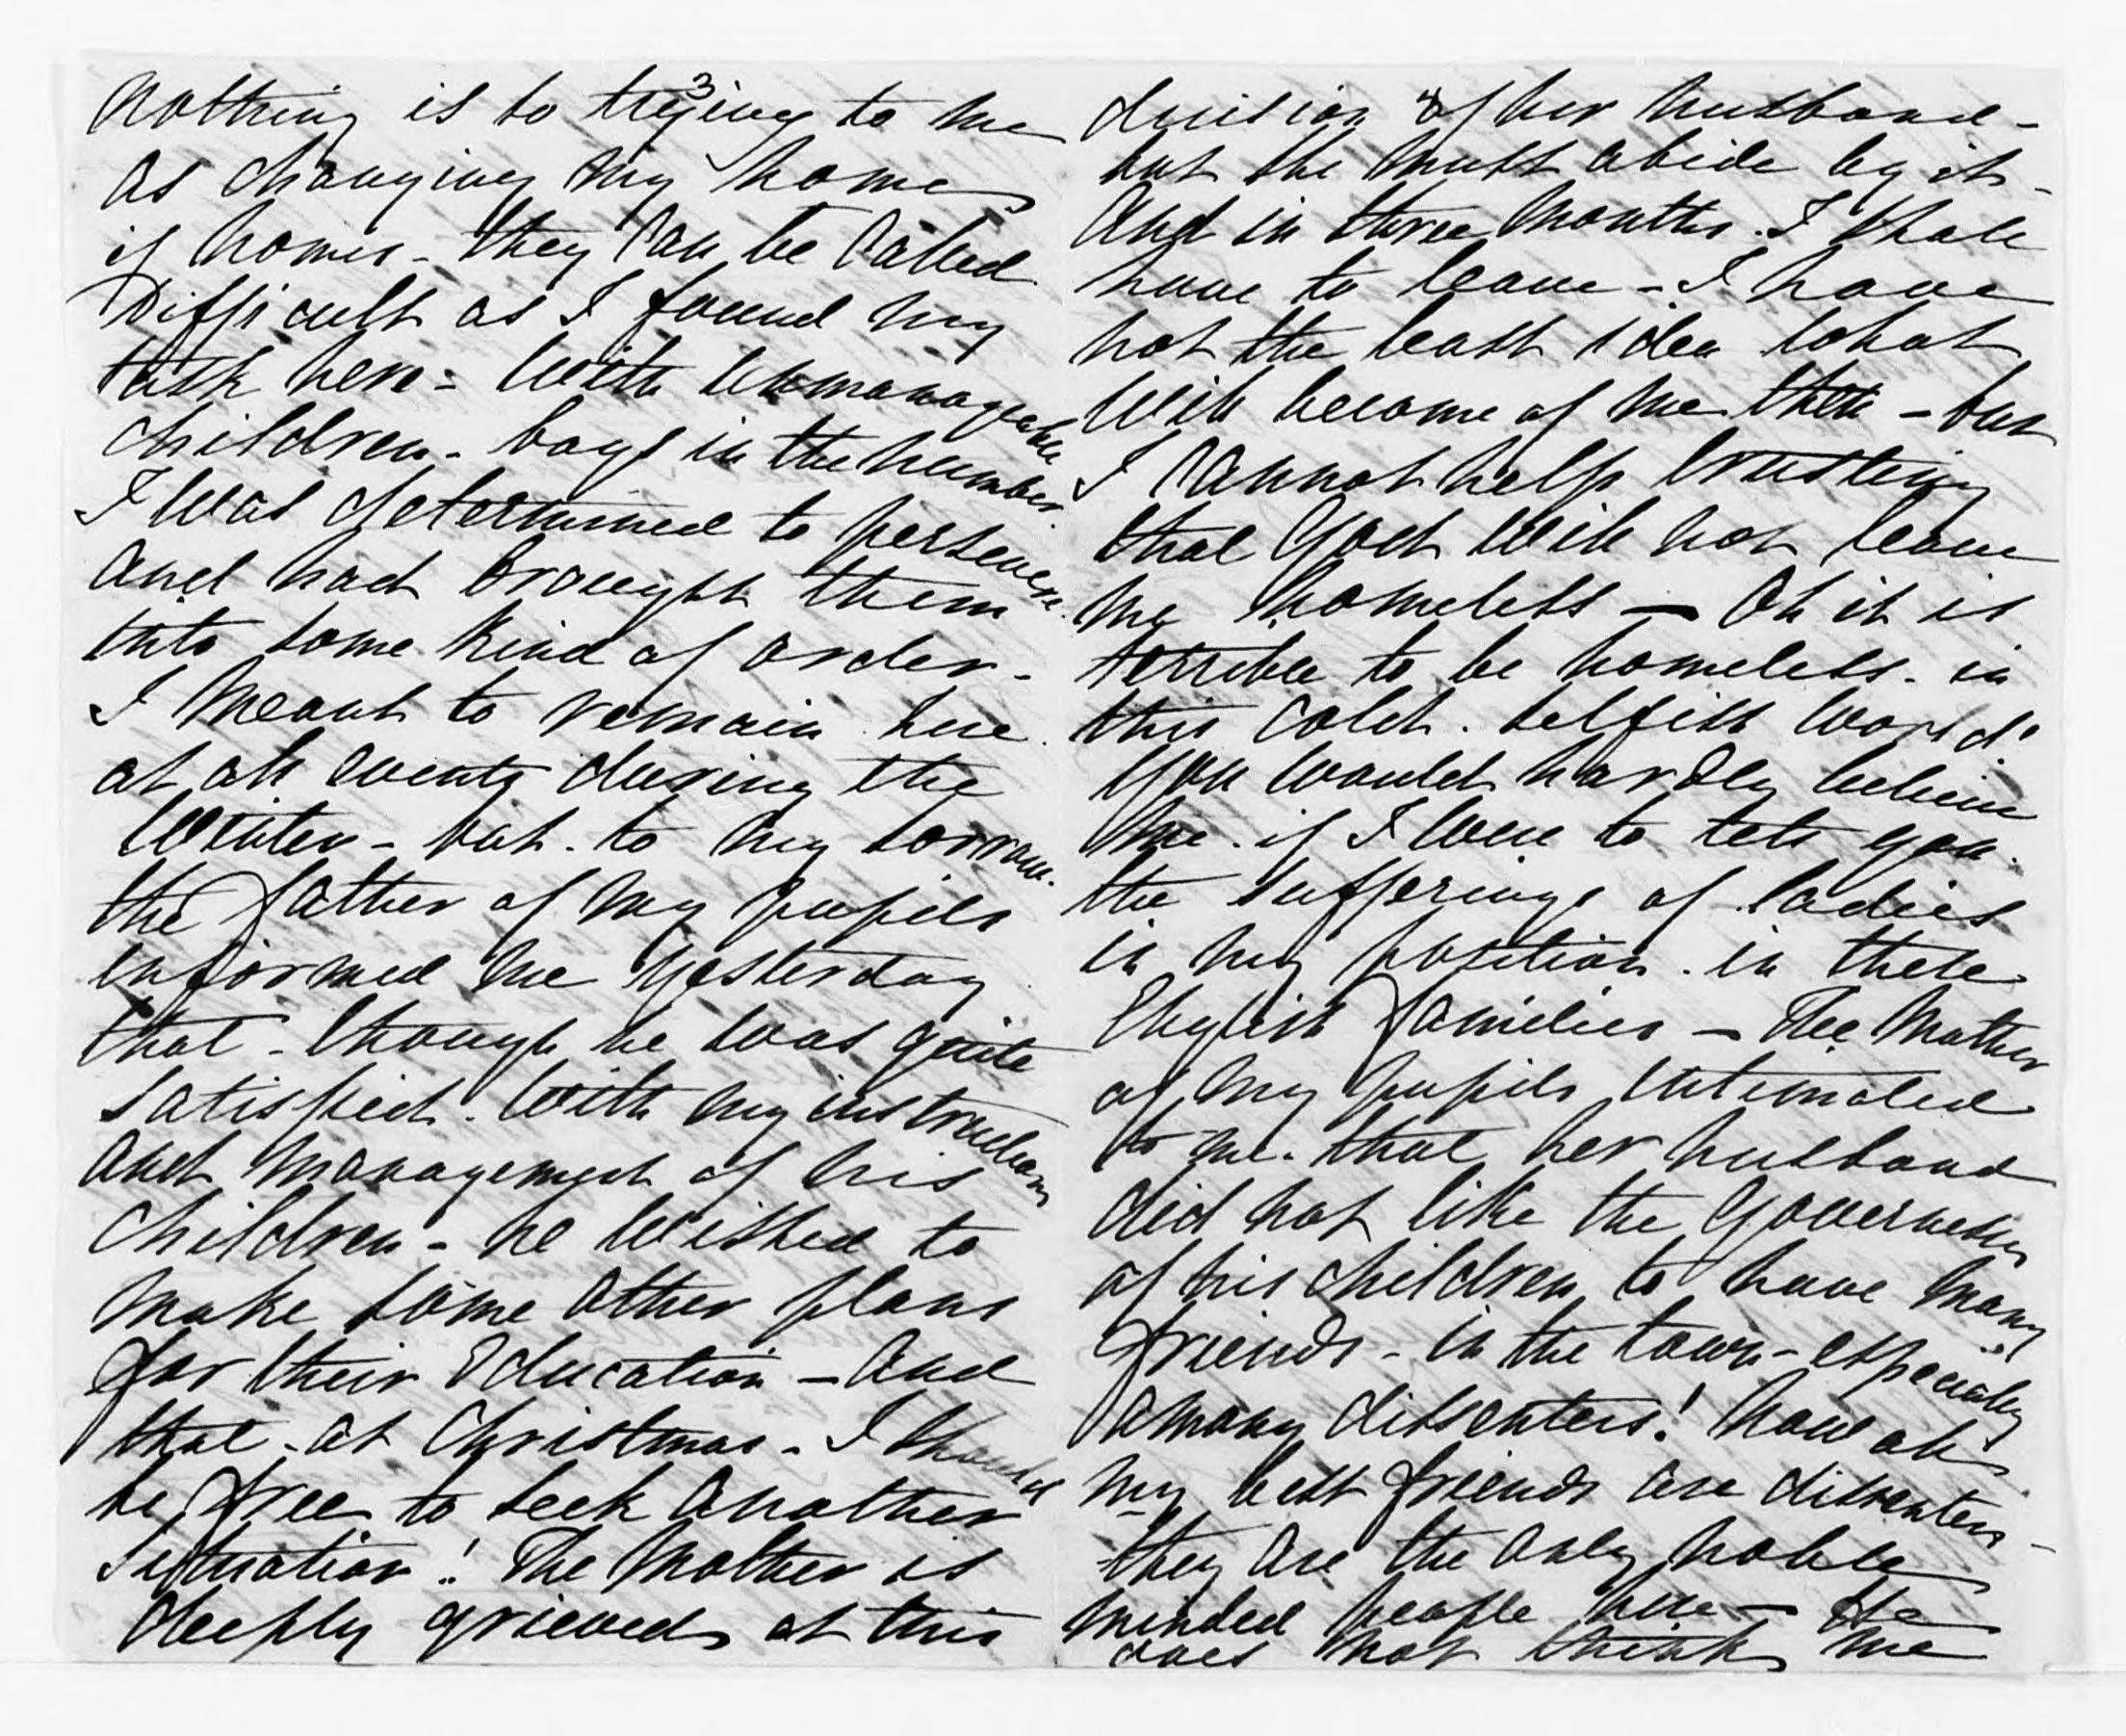 3
nothing is so trying to me
as changing my home
if homes - they can be called
Difficult as I found my
task here - with unmanageable
children - boys in the number.
I was determined to persevere.
and had brought them
into some kind of order -
I meant to remain here.
at all events during the
Winter - but. to my sorrow.
the father of my pupils
informed me yesterday
that - though he was quite
satisfied. with my instructions
and management of his
children - he wished to
make some other plans
for their Education - and
that - at Christmas - I should
be free to seek another
situation! The Mother is
deeply grieved at this
4
decision of her husband -
but she must abide by it -
And in three months. I shall
have to leave - I have
not the least idea what
will become of me then - but
I cannot help trusting
that God will not leave
me homeless - Oh it is
terrible to be homeless. in
this cold. selfish world!
You would hardly believe
me. if I were to tell you.
the sufferings of ladies
in my position. in these
English families - The Mother
of my pupils intimated
to me. that her husband
did not like the Governess
of his children to have many
friends - in the town - especially
among dissenters! Now all
my best friends are dissenters -
they are the only noble
minded people here - He
does not think me